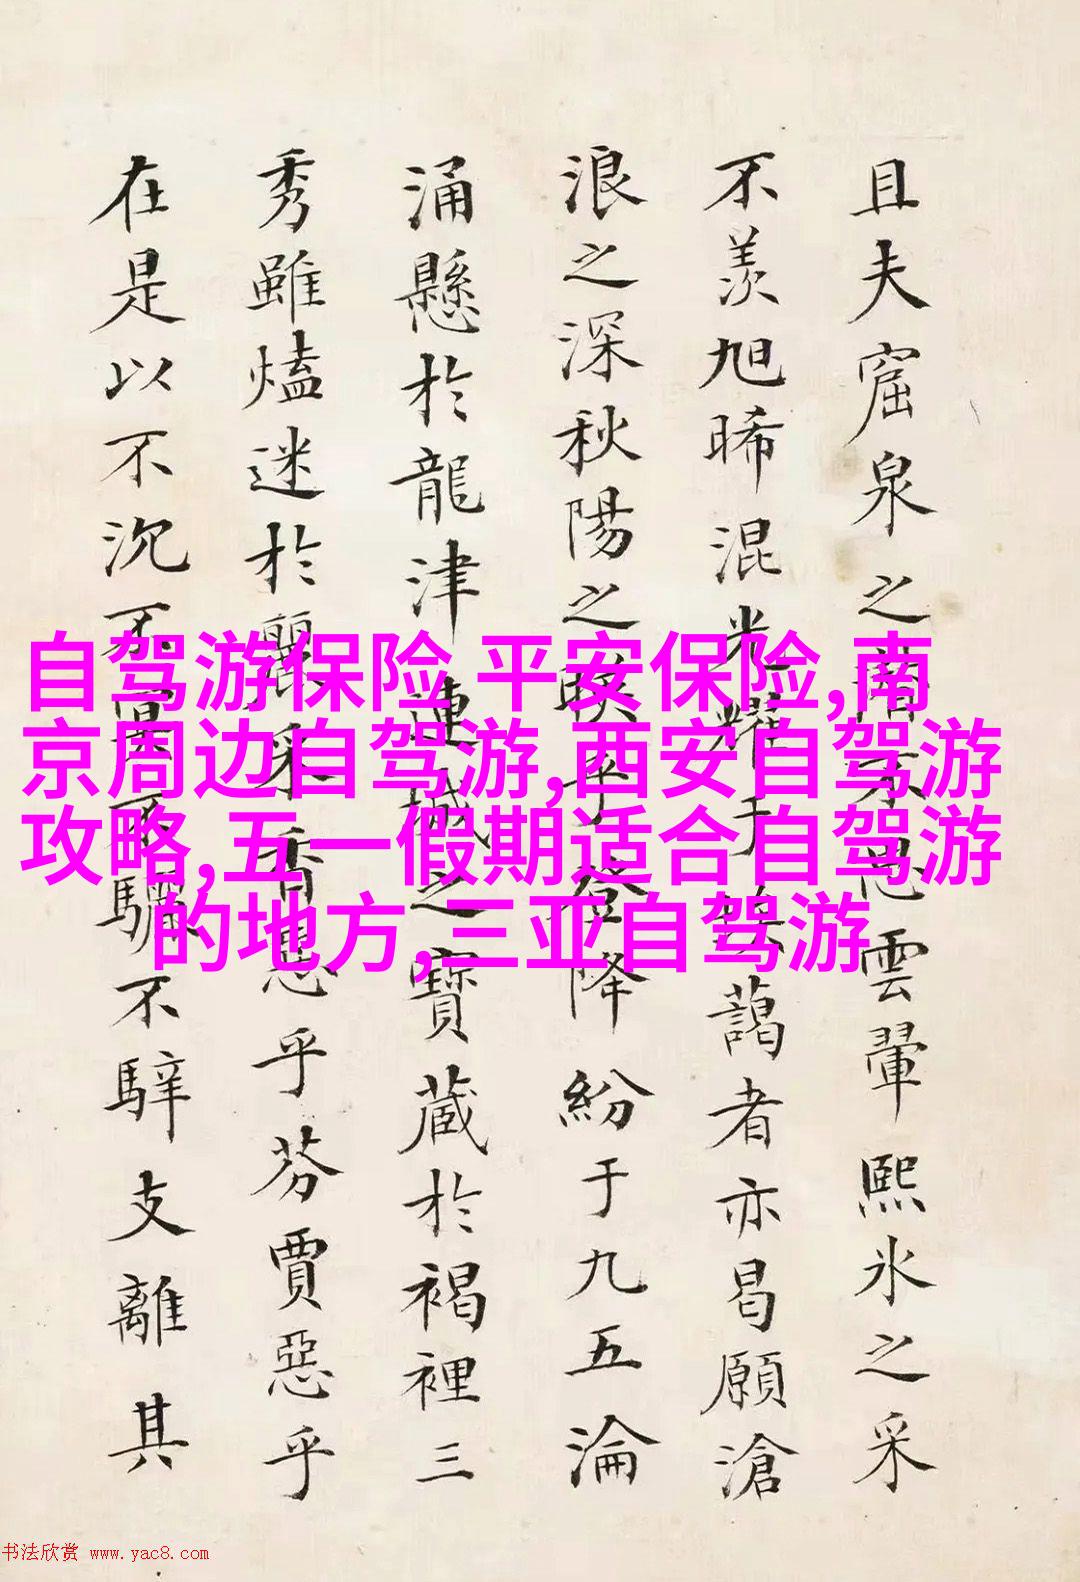 且夫窟泉之不思雲翬熙氷之采
不羡旭晞混光耀于藹者亦曷願滄
浪之深秋陽之暎乎登降紛于九五淪
涌懸於龍津連城之寳蔵於褐裡三
秀雖熆迷於麗采香乎芬賈惡乎
在是以不沉不不驪不騂支離其
自驾游保险,平安保险,南
京周边自驾游,西安自驾游
攻略,五一假期适合自驾游
的地方,三亚自驾游
书法欣赏 www.yac8.com